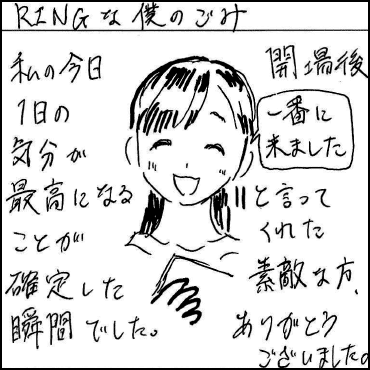 RINGな僕のごみ
開場後
一番に
来ました
と言って
くれた
素敵な方、
ありがとう
ございました。
私の今日
1日の
気分が
最高になる
ことが
確定した
瞬間でした。